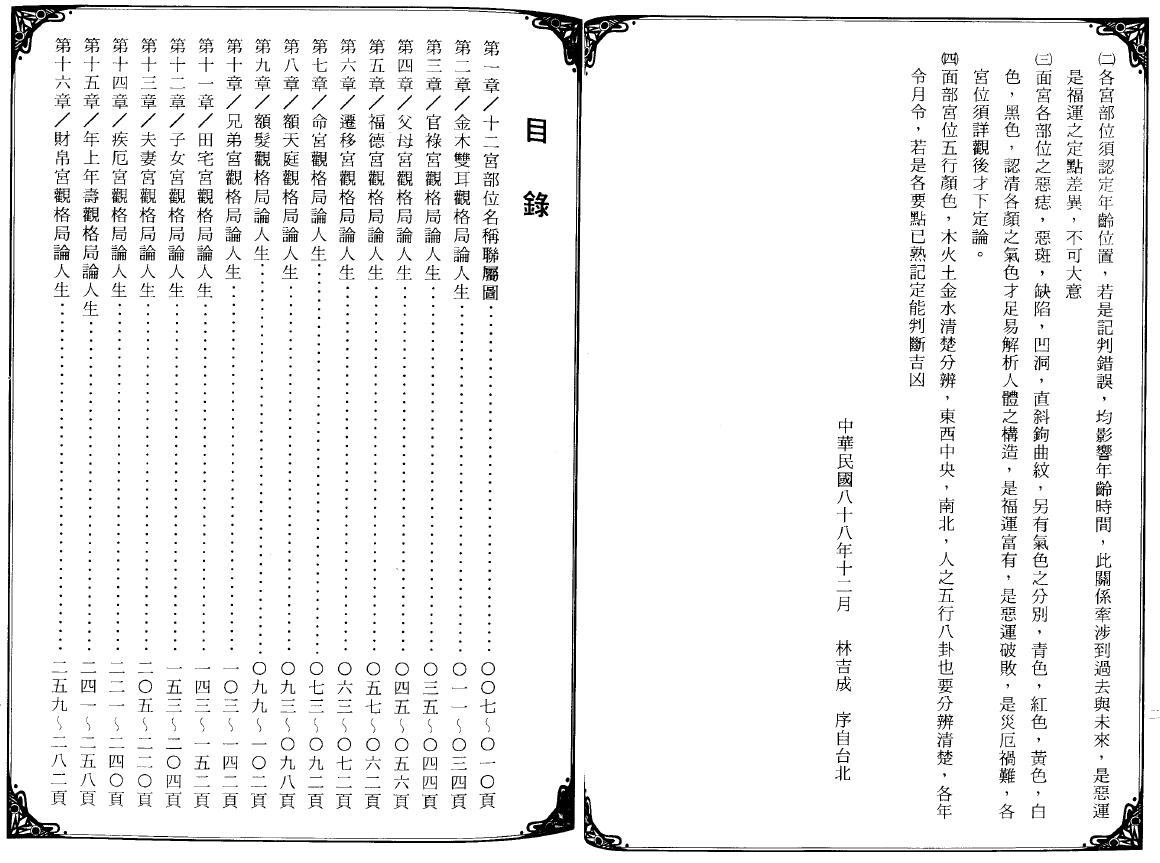 ㈡各宮部位須認定年齡位置，若是記判錯誤，均影響年齡時間，此關係牽涉到過去與未來，是惡運
是福運之定點差異，不可大意
㈢面宮各部位之惡痣，惡斑，缺陷，凹洞，直斜鉤曲紋，另有氣色之分別，青色，紅色，黃色，白
色，黑色，認清各顏之氣色才足易解析人體之構造，是福運富有，是惡運破敗，是災厄禍難，各
宮位須詳觀後才下定論。
㈣面部宮位五行顏色，木火土金水清楚分辨，東西中央，南北，人之五行八卦也要分辨清楚，各年
令月令，若是各要點已熟記定能判斷吉凶
中華民國八十八年十二月　林吉成　序自台北
目錄
第一章／十二宮部位名稱聯屬圖……………〇〇七～〇一〇頁
第二章／金木雙耳觀格局論人生……………〇一一～〇三四頁
第三章／官祿宮觀格局論人生……………〇三五～〇四四頁
第四章／父母宮觀格局論人生……………〇四五～〇五六頁
第五章／福德宮觀格局論人生……………〇五七～〇六二頁
第六章／遷移宮觀格局論人生……………〇六三～〇七二頁
第七章／命宮觀格局論人生……………〇七三～〇九二頁
第八章／額天庭觀格局論人生……………〇九三～〇九八頁
第九章／額髮觀格局論人生……………〇九九～一〇二頁
第十章／兄弟宮觀格局論人生……………一〇三～一四二頁
第十一章／田宅宮觀格局論人生……………一四三～一五二頁
第十二章／子女宮觀格局論人生……………一五三～二〇四頁
第十三章／夫妻宮觀格局論人生……………二〇五～二二〇頁
第十四章／疾厄宮觀格局論人生……………二二一～二四〇頁
第十五章／年上年壽觀格局論人生……………二四一～二五八頁
第十六章／財帛宮觀格局論人生……………二五九～二八二頁